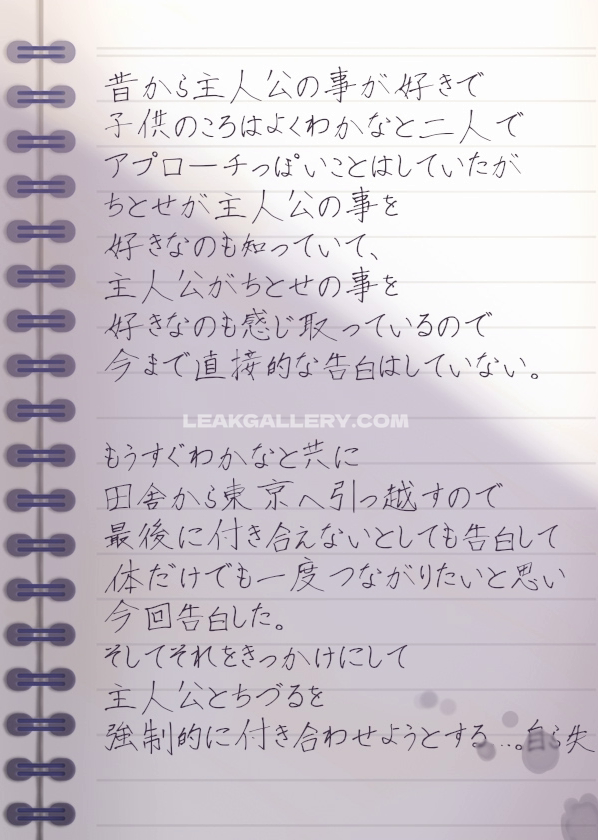 昔から主人公の事が好きで
子供のころはよくわかなと二人で
アプローチっぽいことはしていたが
ちとせが主人公の事を
好きなのも知っていて、
主人公がちとせの事を
好きなのも感じ取っているので
今まで直接的な告白はしていない。
LEAKGALLERY.COM
もうすぐわかなと共に
田舎から東京へ引っ越すので
最後に付き合えないとしても告白して
体だけでも一度つながりたいと思い
今回告白した。
そしてそれをきっかけにして
主人公とちづるを
強制的に付き合わせようとする...。自ら失